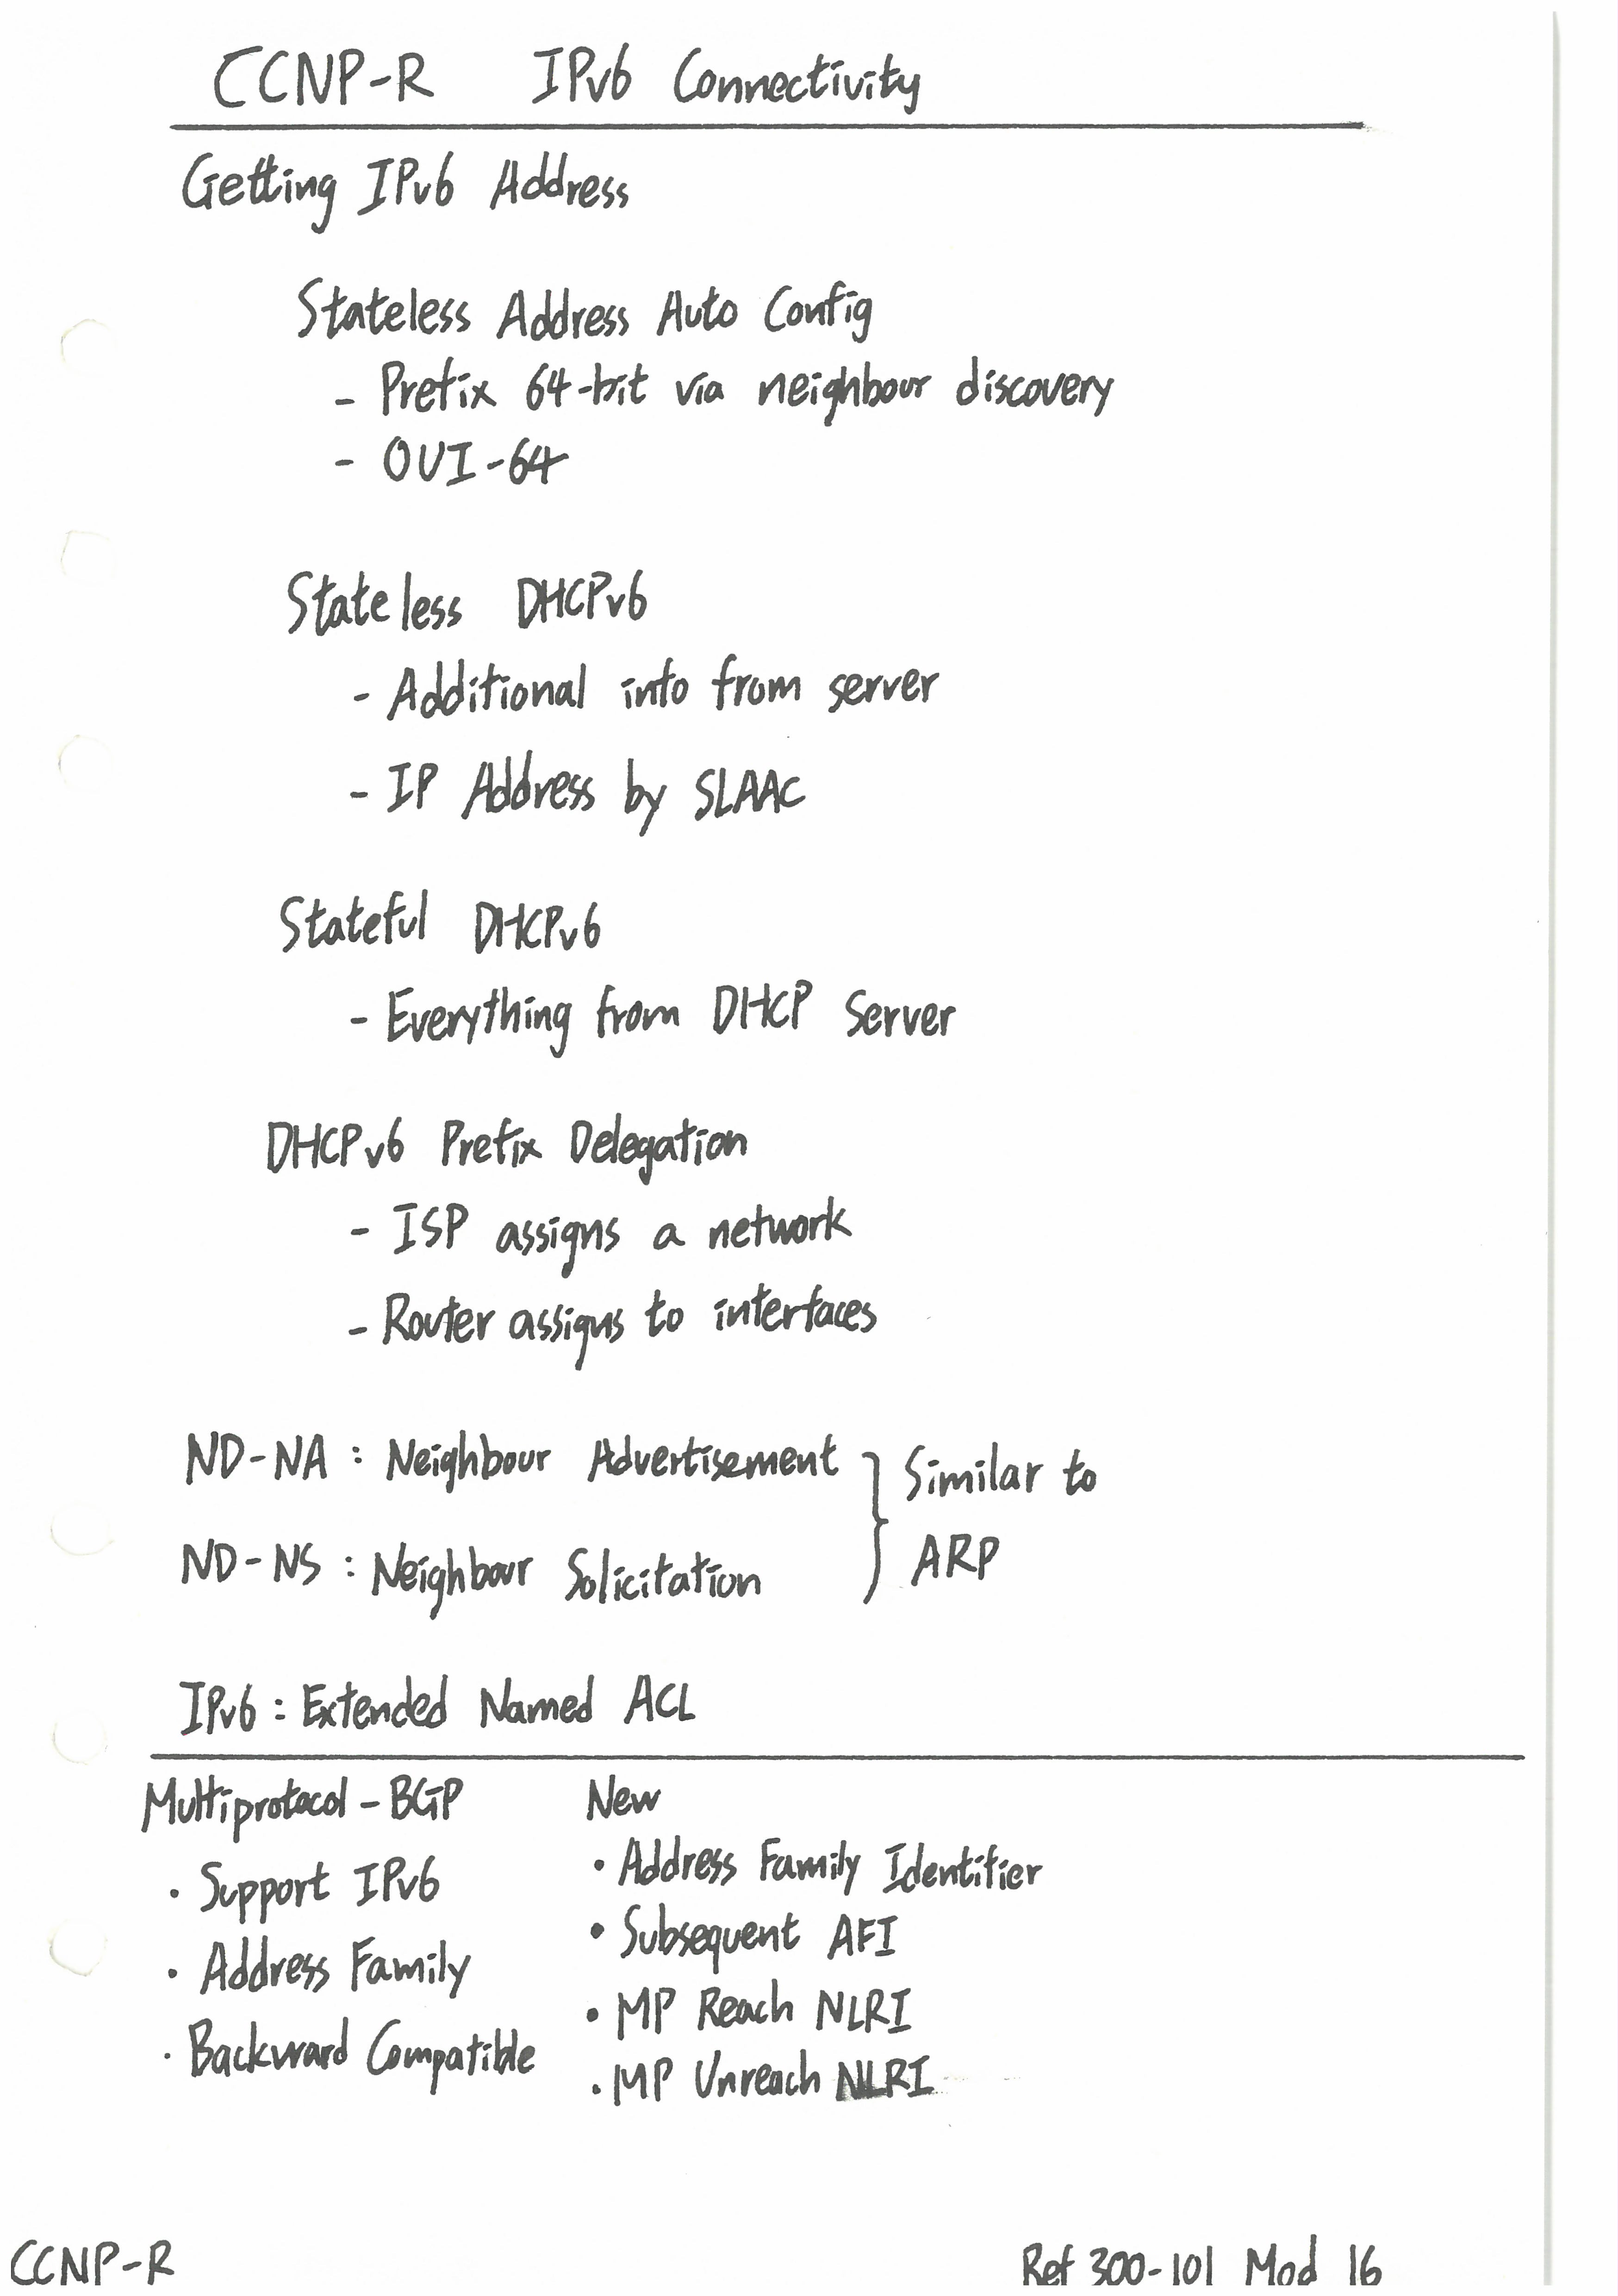 CCNP-R IPv6 Connectivity
Getting IPv6 Address
Stateless Address Auto Config
- Prefix 64-bit via neighbour discovery
- OUI-64
Stateless DHCPv6
- Additional info from server
- IP Address by SLAAC
Stateful DHCPv6
- Everything from DHCP Server
DHCPv6 Prefix Delegation
- ISP assigns a network
- Router assigns to interfaces
ND-NA : Neighbour Advertisement
ND-NS : Neighbour Solicitation
} Similar to
ARP
IPv6 : Extended Named ACL
Multiprotocol-BGP
• Support IPv6
• Address Family
• Backward Compatible
New
• Address Family Identifier
• Subsequent AFI
• MP Reach NLRI
• MP Unreach NLRI
CCNP-R
Ref 300-101 Mod 16